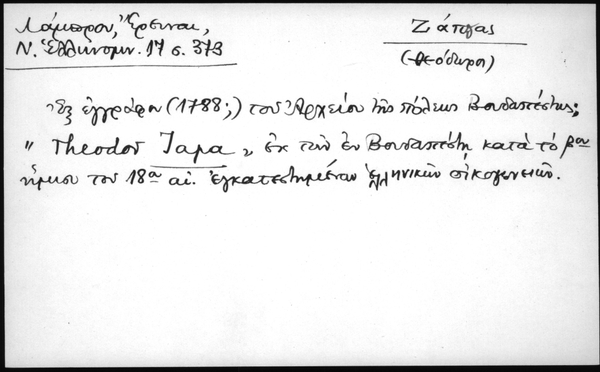 Λάμπρου, Ἔρευναι,
Ν. Ἑλληνομν. 17 σ. 373
Ζάπγας
(Θεόδωρος)
Ἐξ ἐγγράφου (1788;) τοῦ Ἀρχείου τῆς πόλεως Βουδαπέστης;
" Theodor Zapa " ἐκ τῶν ἐν Βουδαπέστῃ κατὰ τὸ βον
ἥμισυ τοῦ 18ου αἰ. ἐγκατεστημένων ἑλληνικῶν οἰκογενειῶν.